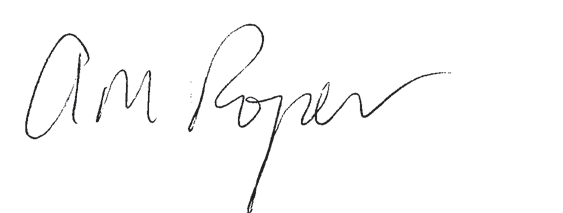 am Roper